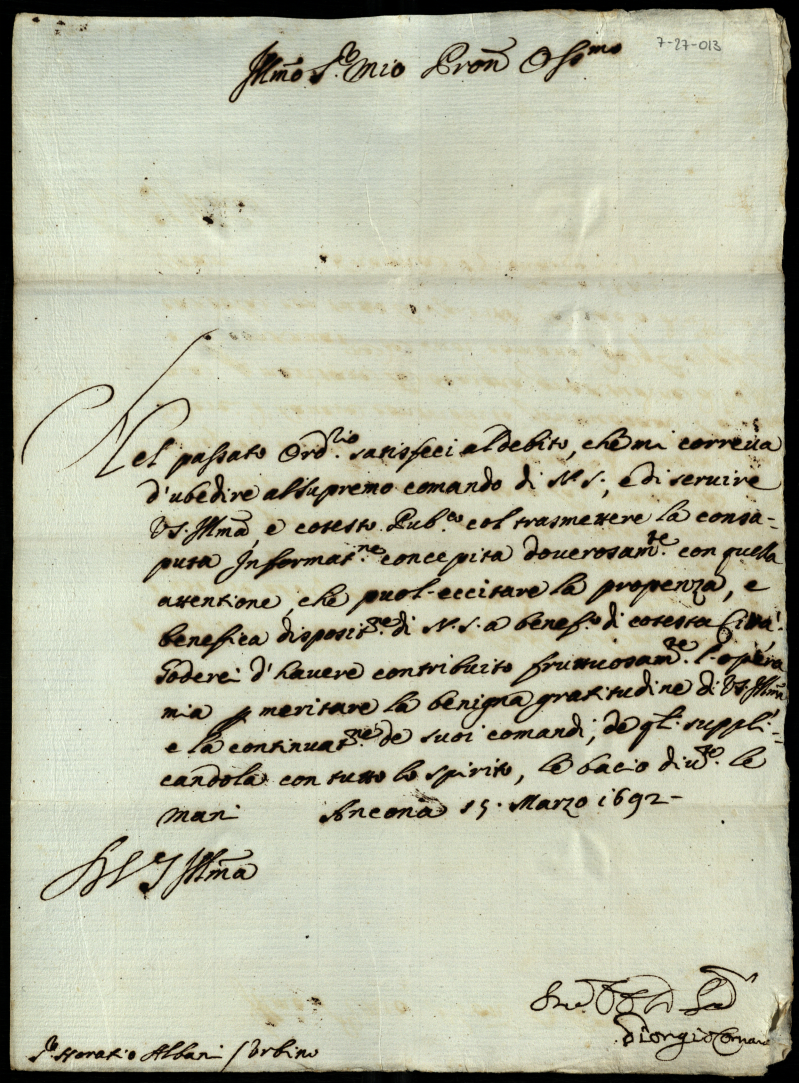 7-27-013
Ill͂mo S.r Mio Pron͂ Oss.mo
Nel passato Ord.rio satisfeci al debito, che mi correua
d'ubedire al supremo comando di N. S., e di seruire
VS. Ill͂ma, e cotesto Pub.co col trasmettere la consa-
puta Informat.ne concepita douerosam.te con quella
attentione, che puol eccitare la propenza, e
benefica disposit.ne di N. S. a benef.o di cotesta Città.
Goderei d'hauere contribuito fruttuosam.te l'opera
mia p meritare la benigna gratitudine di VS. Ill͂ma
e la continuat.ne de suoi comandi; de q.li suppli-
candola con tutto lo spirito, le bacio diu.te le
mani Ancona 15. Marzo 1692-
Di VS Ill͂ma
Giorgio Cornaro
S.r Horatio Albani / Vrbino